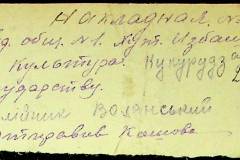 Накладная, №
общ. №1. Хут. Избаш
Культура: Кукурудза
ударству.
Волянський
Отправив Кошове